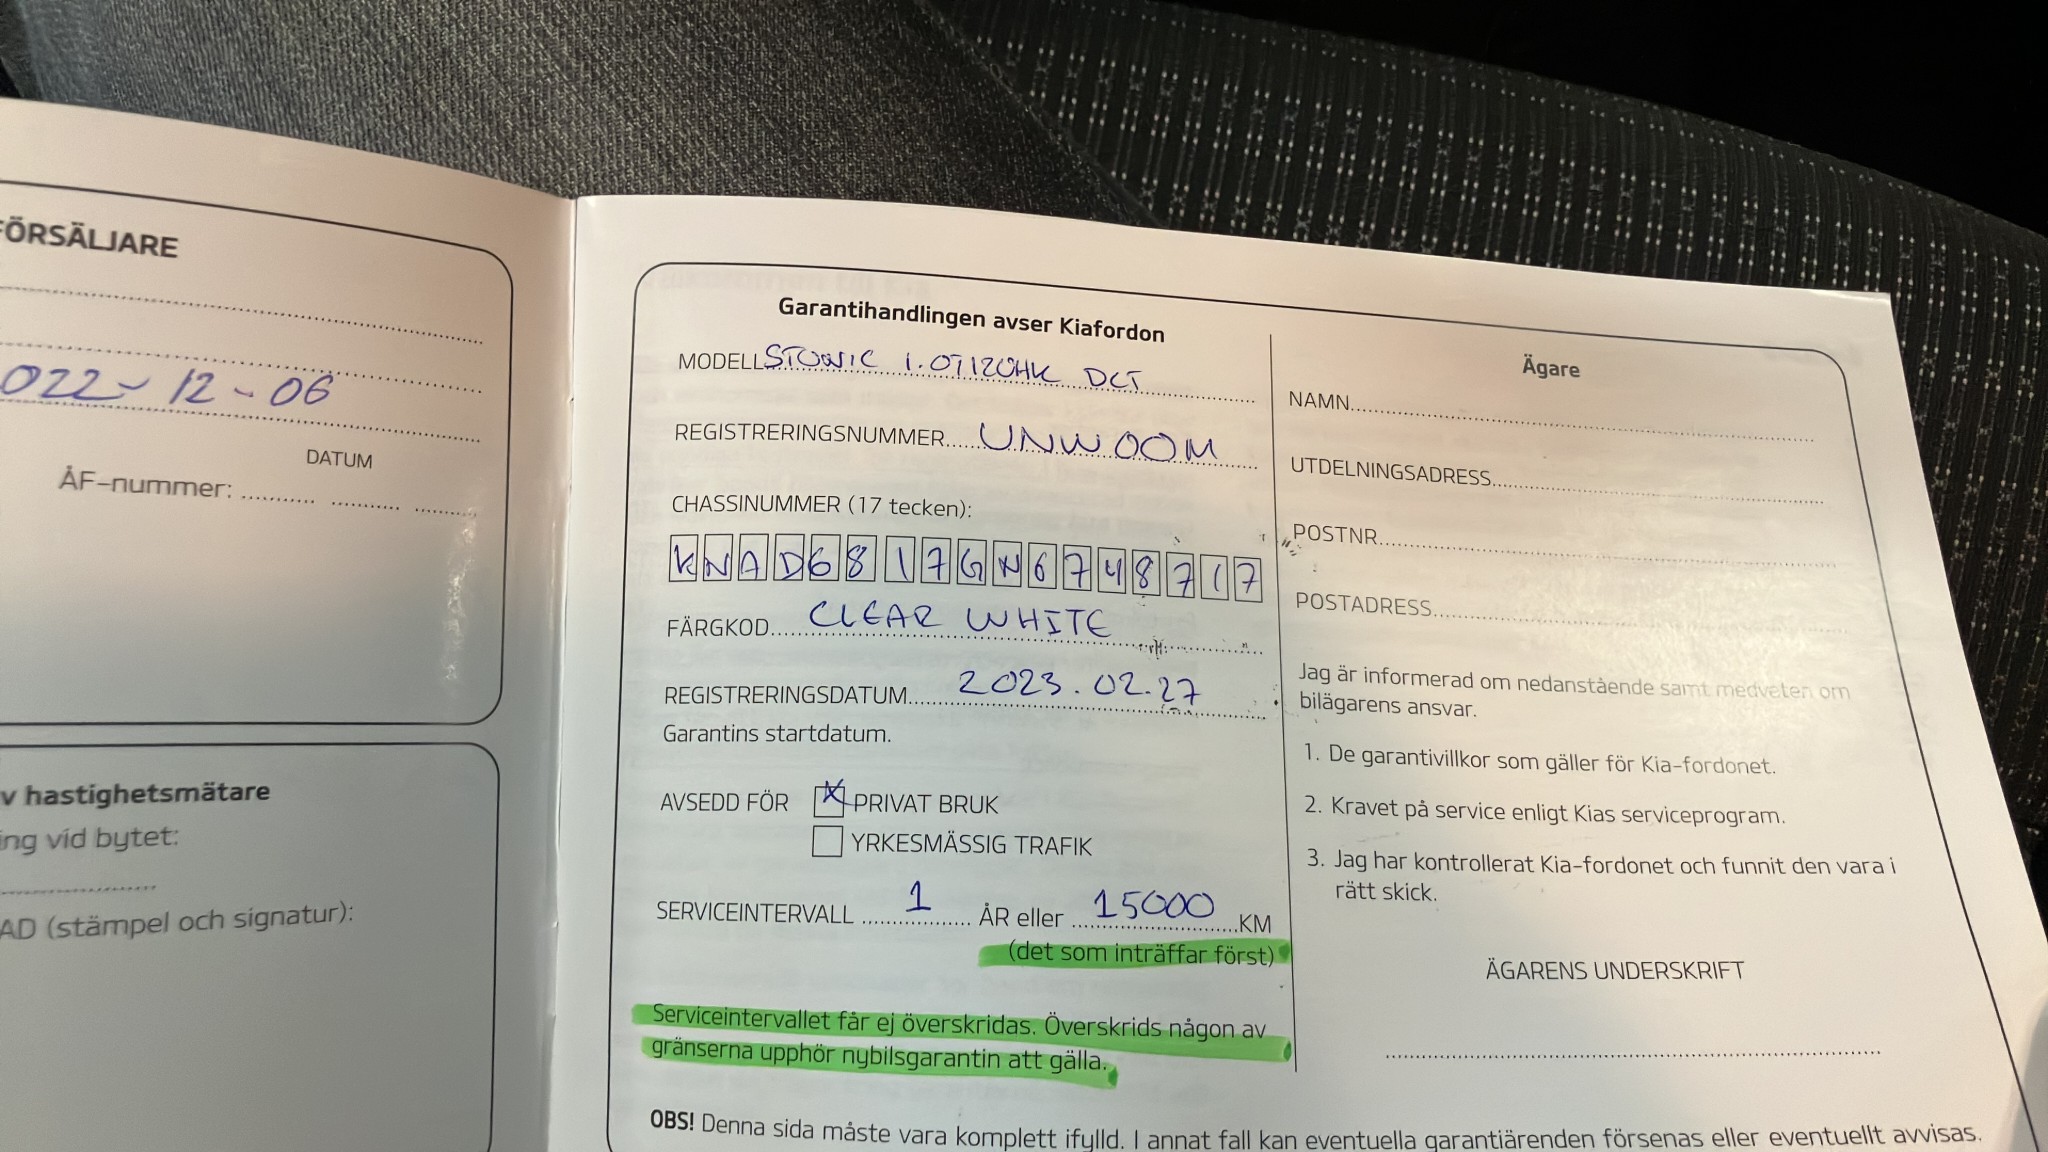 FÖRSÄLJARE
022-12-06
DATUM
ÅF-nummer: .......... .......... ..........
v hastighetsmätare
ing vid bytet:
AD (stämpel och signatur):
Garantihandlingen avser Kiafordon
MODELL STONIC 1.0T120HK DCT
REGISTRERINGSNUMMER..... UNW00M
CHASSINUMMER (17 tecken):
KNAD6817GN6748717
FÄRGKOD..... CLEAR WHITE
REGISTRERINGSDATUM..... 2023.02.27
Garantins startdatum.
AVSEDD FÖR X PRIVAT BRUK
YRKESMÄSSIG TRAFIK
SERVICEINTERVALL ..... 1 ..... ÅR eller ..... 15000 ..... KM
(det som inträffar först)
Serviceintervallet får ej överskridas. Överskrids någon av
gränserna upphör nybilsgarantin att gälla.
Ägare
NAMN.....
UTDELNINGSADRESS.....
POSTNR.....
POSTADRESS.....
Jag är informerad om nedanstående samt medveten om
bilägarens ansvar.
1. De garantivillkor som gäller för Kia-fordonet.
2. Kravet på service enligt Kias serviceprogram.
3. Jag har kontrollerat Kia-fordonet och funnit den vara i
rätt skick.
ÄGARENS UNDERSKRIFT
OBS! Denna sida måste vara komplett ifylld. I annat fall kan eventuella garantiärenden försenas eller eventuellt avvisas.